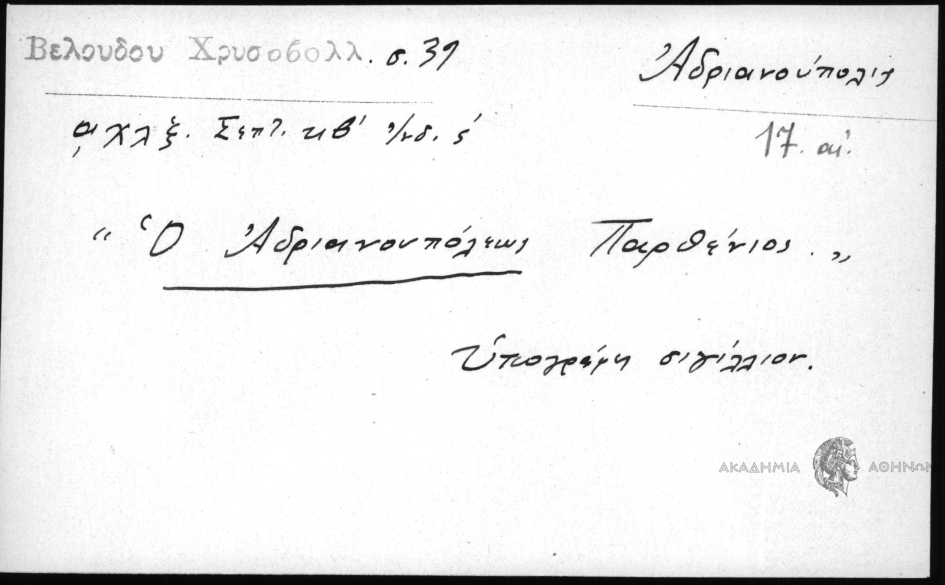 Βελουδου Χρυσοβολλ. σ. 39
Ἀδριανούπολις
͵αχλξ. Σεπτ. κβʹ ἰνδ. ςʹ
17. αἰ.
“ Ὁ Ἀδριανουπόλεως Παρθένιος. „
Ὑπογράφη σιγίλλιον.
ΑΚΑΔΗΜΙΑ ΑΘΗΝΩΝ